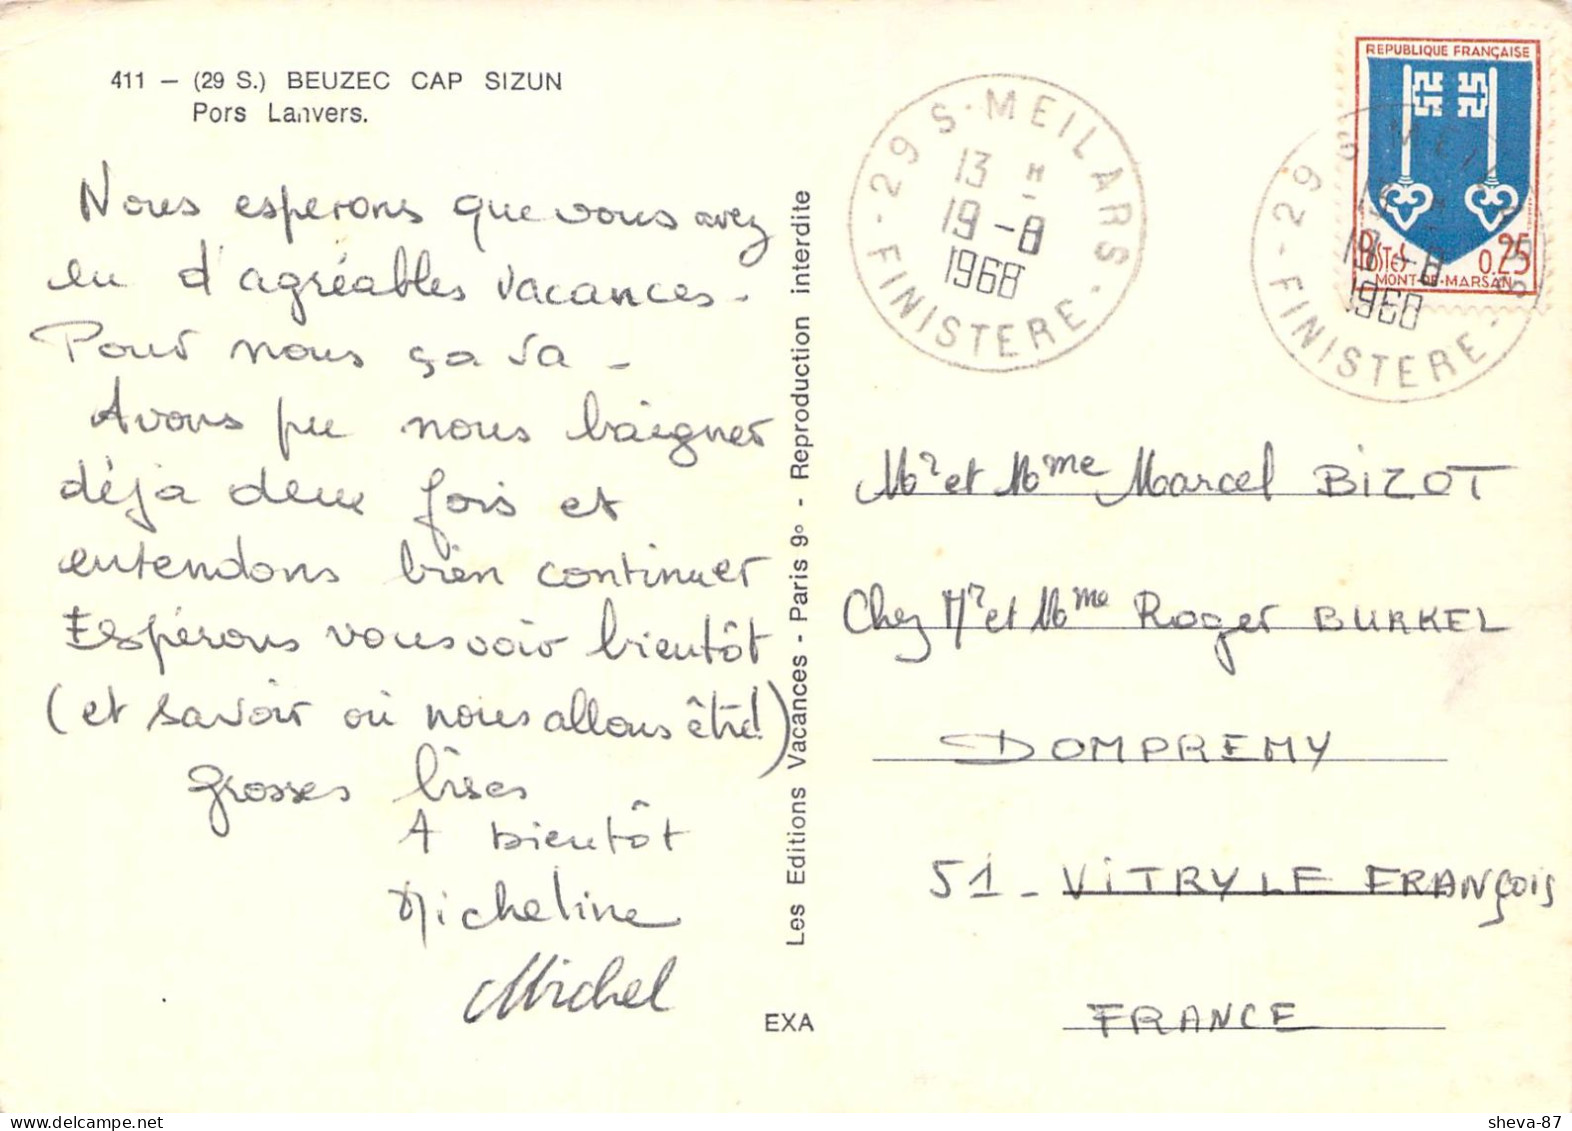 411 – (29 S.) BEUZEC CAP SIZUN
Pors Lanvers.
Nous esperons que vous avez
eu d'agréables vacances -
Pour nous ça va -
Avons pu nous baigner
déjà deux fois et
entendons bien continuer
Espérons vous voir bientôt
(et savoir où nous allons être!)
grosses bises
A bientôt
Micheline
Michel
Les Editions Vacances - Paris 9º - Reproduction interdite
EXA
29 S. MEILARS
13 H
19 -8
1968
- FINISTERE -
REPUBLIQUE FRANÇAISE
POSTES 0,25
MONT-DE-MARSAN
29 S. MEILARS
13 H
19 -8
1968
- FINISTERE -
Mr et Mme Marcel BIZOT
Chez Mr et Mme Roger BURKEL
DOMPREMY
51 - VITRY LE FRANÇOIS
FRANCE
sheva-87